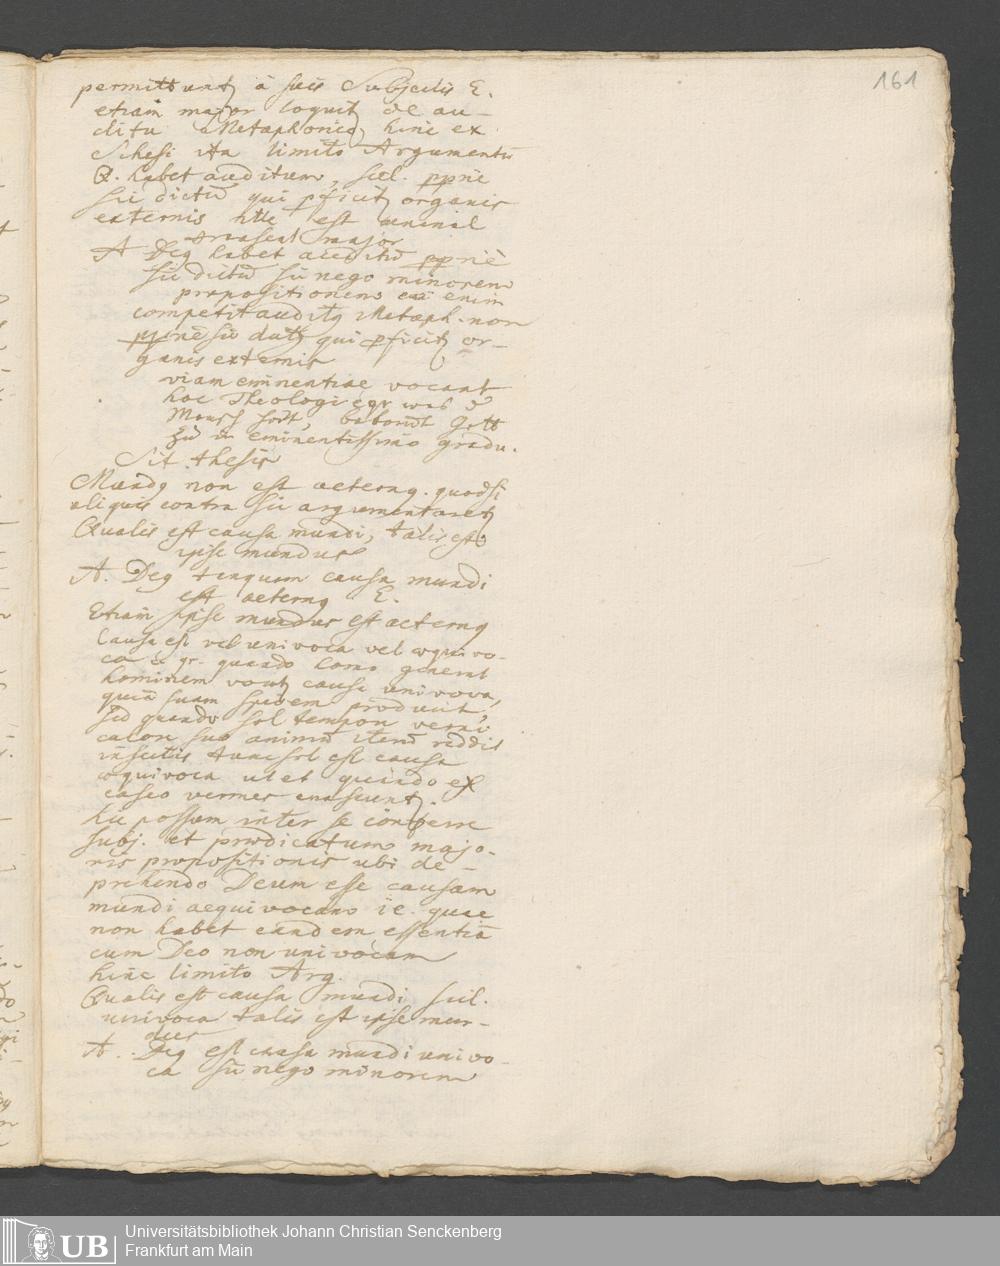 161
permittunt⟨ur⟩ à suis Subjectis E.
etiam major loquit de au-
ditu Metaphorico hinc ex
Schesi ita limito Argumentū
Q. habet auditum, scil. pprie
sic dictū qui pficit organis
externis ille est animal
major
A Deq habet auditū ppriè
sic dictū sic nego minorem
propositionem enim
competit auditq Metaph. non
ppriè sic qui pficit or-
ganis externis
viam eminentiae vocant
hoc Theologi was
Mensch hört, Gott
in eminentissimo gradu.
Sit thesis
Mundq non est aeternq. quodsi
aliquis contra sic argumentaret
Qualis est causa mundi, talis est
ipse mundus
A. Deq tanquam causa mundi
est aeternq E.
Etiam ipse mundus est aeternq
Causa est vel univoca vel æquivo-
ca e. gr. quando homo generat
hominem causa univoca,
quia suam speciem producit,
sed quando sol tempori verni
calore suo animā iterū reddit
insectis tunc sol est causa
æquivoca ut et quando ex
caseo vermes enascunt.
hic possum inter se conferre
subj. et prædicatum majo-
ris propositionis ubi de-
prehendo Deum esse causam
mundi aequivocam i e. quae
non habet eandem essentiā
cum Deo non univocam
hinc limito Arg.
Qualis est causa mundi scil.
univoca talis est ipse mun-
dus
A. Deq est causa mundi univo-
ca sic nego minorem
Universitätsbibliothek Johann Christian Senckenberg
Frankfurt am Main
UB